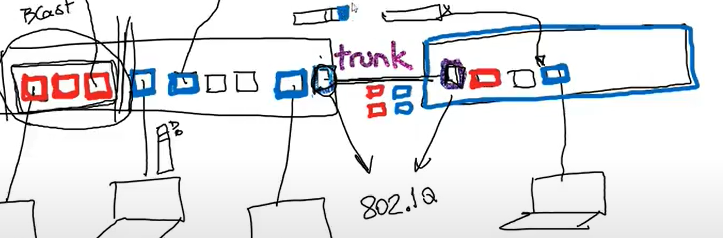 BCast
trunk
802.1Q